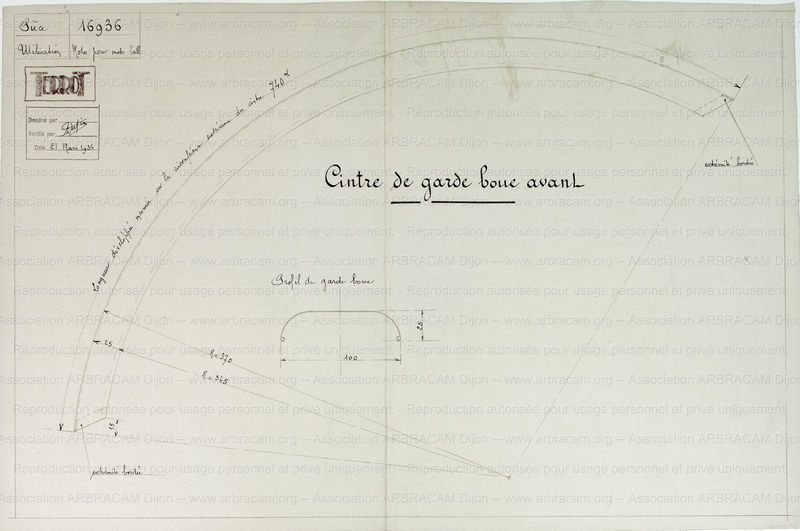 Pièce 16936
Utilisation Moto pour mob ball
TERROT
Dessiné par
Vérifié par
Date 21 Mars 1936
Longueur développée mesurée sur la circonférence extérieure du cintre 740
Cintre de garde boue avant
extrémité bordée
Profil de garde boue
25
100
R = 370
R = 345
25
15
extrémité bordée
Association ARBRACAM Dijon -- www.arbracam.org -- Association ARBRACAM Dijon -- www.arbracam.org
Reproduction autorisée pour usage personnel et privé uniquement. - Reproduction autorisée pour usage personnel et privé uniquement.